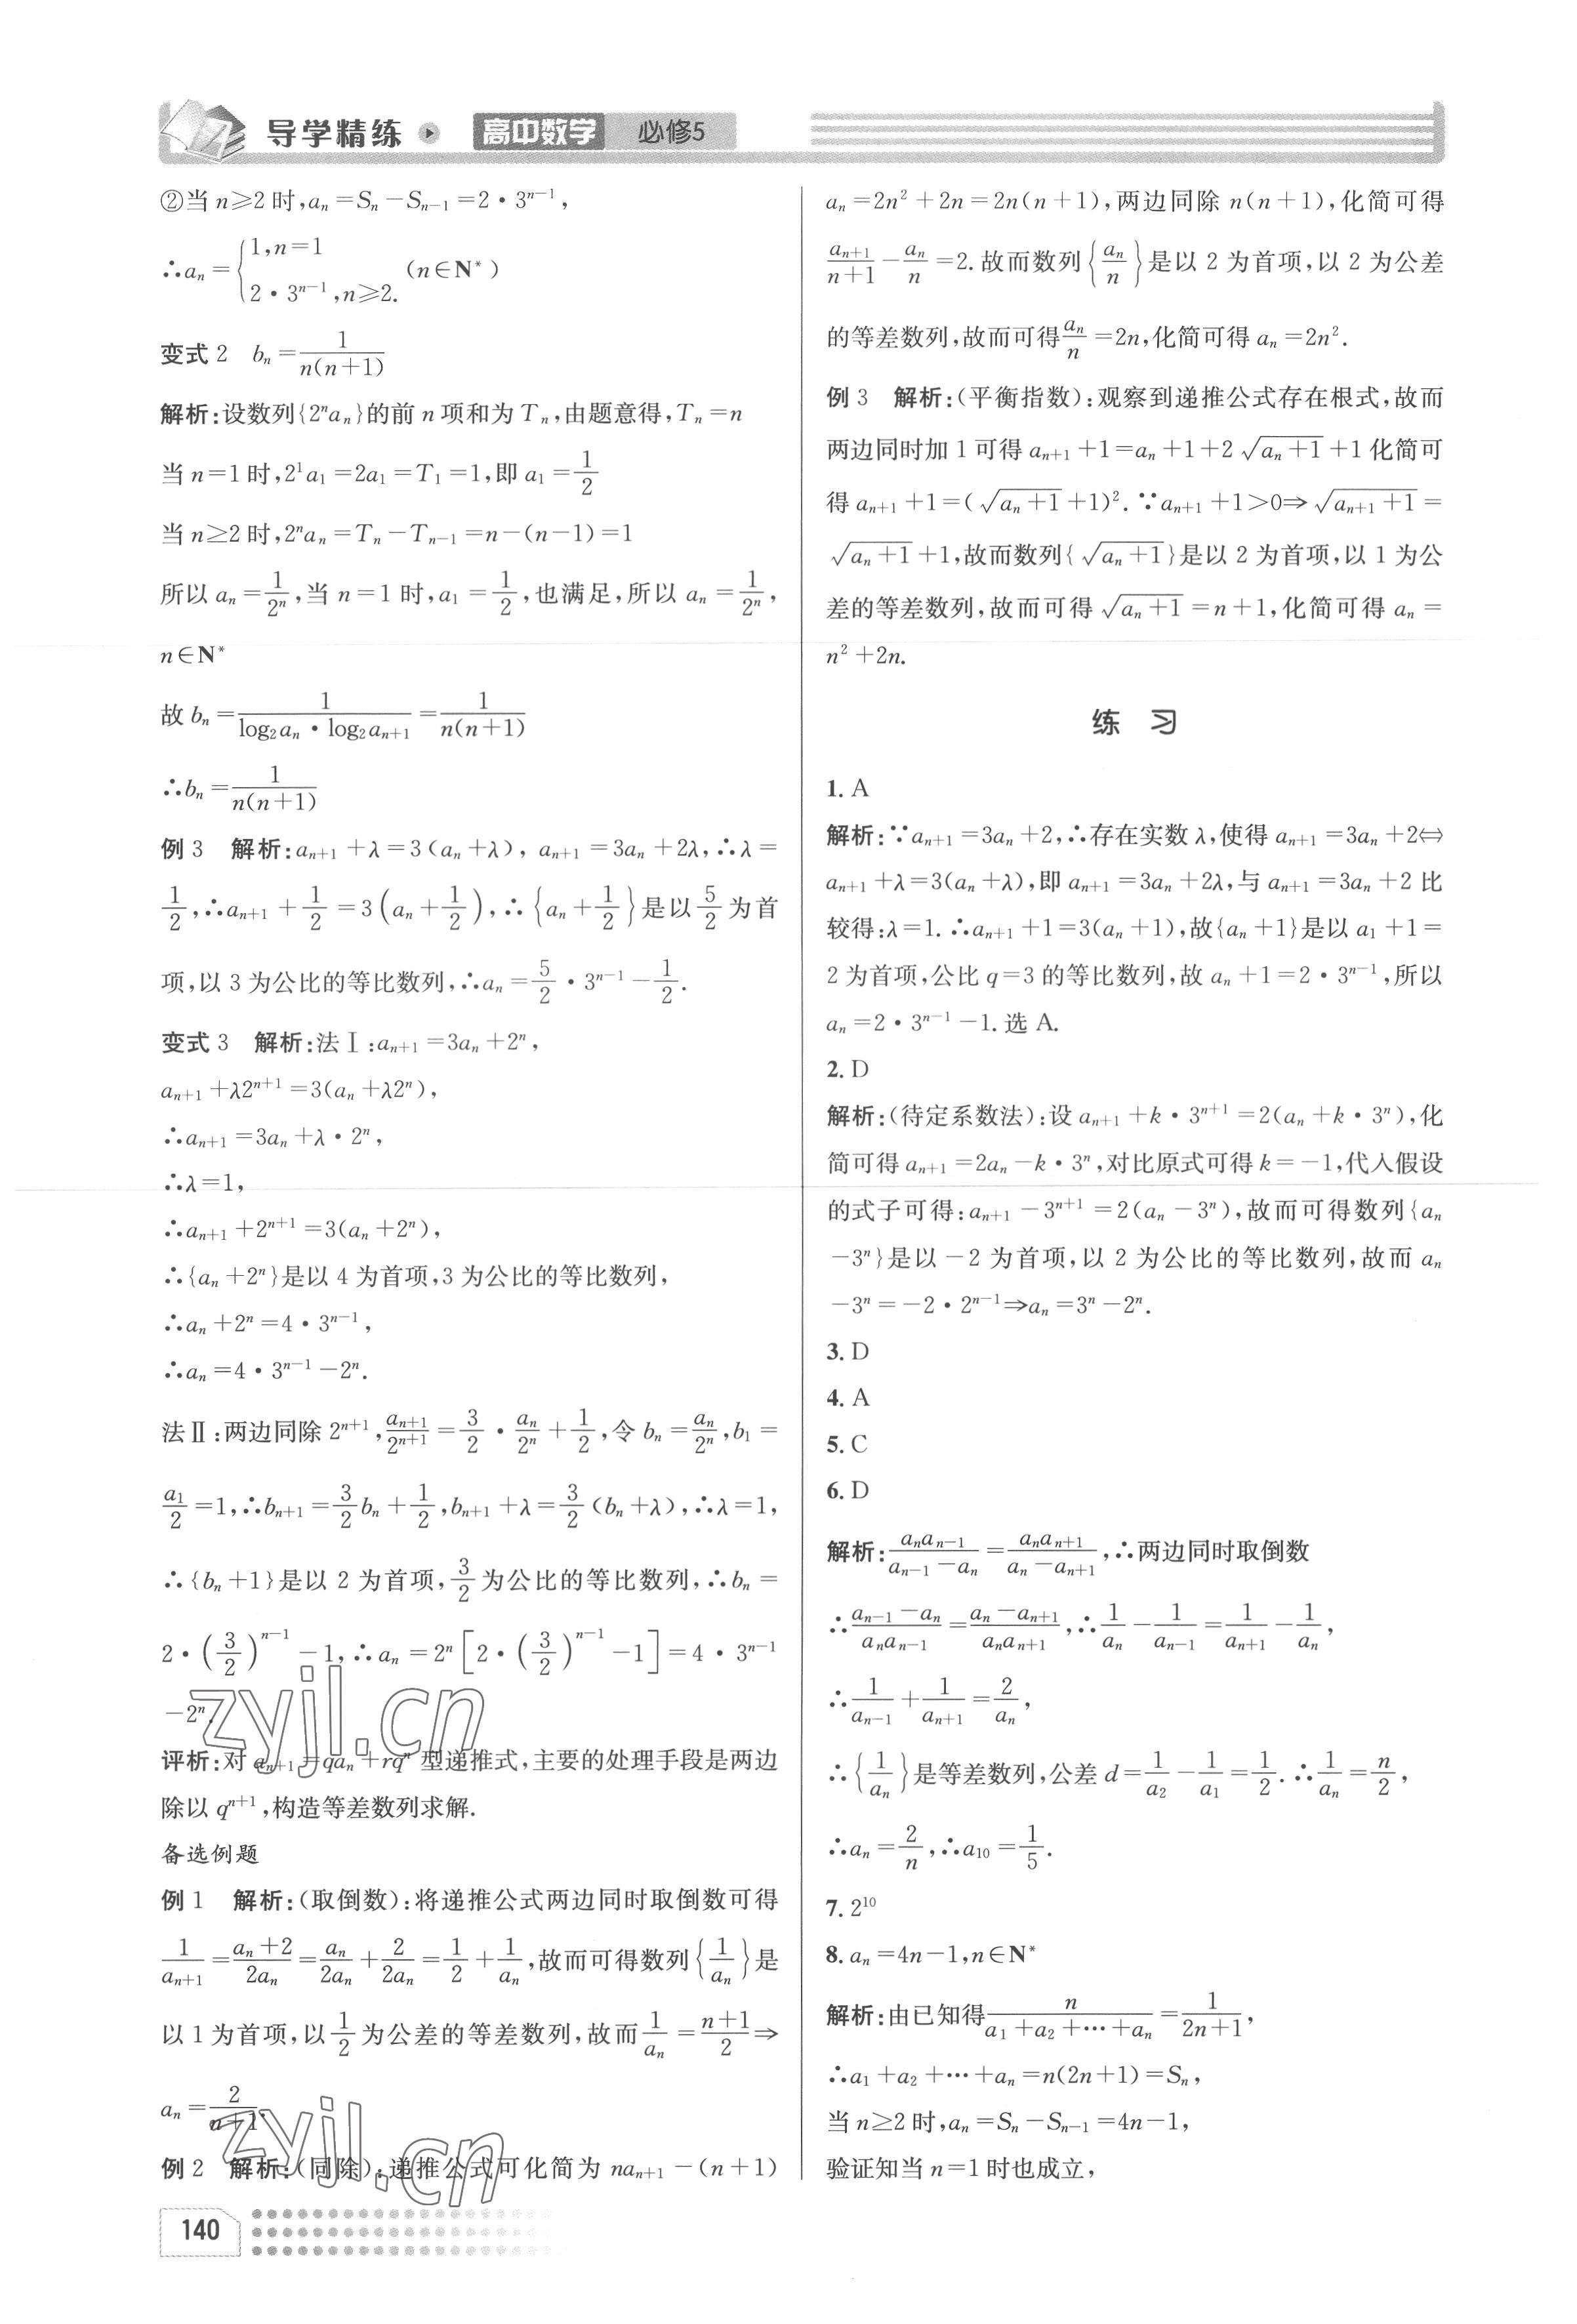 导学精练 高中数学 必修5
②当 n≥2 时,aₙ=Sₙ-Sₙ₋₁=2·3ⁿ⁻¹,
∴aₙ={1,n=1; 2·3ⁿ⁻¹,n≥2. (n∈N*)
变式 2 bₙ=1/(n(n+1))
解析:设数列{2ⁿaₙ}的前 n 项和为 Tₙ,由题意得,Tₙ=n
当 n=1 时,2¹a₁=2a₁=T₁=1,即 a₁=1/2
当 n≥2 时,2ⁿaₙ=Tₙ-Tₙ₋₁=n-(n-1)=1
所以 aₙ=1/2ⁿ,当 n=1 时,a₁=1/2,也满足,所以 aₙ=1/2ⁿ,
n∈N*
故 bₙ=1/(log₂aₙ·log₂aₙ₊₁)=1/(n(n+1))
∴bₙ=1/(n(n+1))
例 3 解析:aₙ₊₁+λ=3(aₙ+λ), aₙ₊₁=3aₙ+2λ,∴λ=
1/2,∴aₙ₊₁+1/2=3(aₙ+1/2),∴{aₙ+1/2}是以5/2为首
项,以 3 为公比的等比数列,∴aₙ=5/2·3ⁿ⁻¹-1/2.
变式 3 解析:法Ⅰ:aₙ₊₁=3aₙ+2ⁿ,
aₙ₊₁+λ2ⁿ⁺¹=3(aₙ+λ2ⁿ),
∴aₙ₊₁=3aₙ+λ·2ⁿ,
∴λ=1,
∴aₙ₊₁+2ⁿ⁺¹=3(aₙ+2ⁿ),
∴{aₙ+2ⁿ}是以 4 为首项,3 为公比的等比数列,
∴aₙ+2ⁿ=4·3ⁿ⁻¹,
∴aₙ=4·3ⁿ⁻¹-2ⁿ.
法Ⅱ:两边同除 2ⁿ⁺¹,aₙ₊₁/2ⁿ⁺¹=3/2·aₙ/2ⁿ+1/2,令 bₙ=aₙ/2ⁿ,b₁=
a₁/2=1,∴bₙ₊₁=3/2bₙ+1/2,bₙ₊₁+λ=3/2(bₙ+λ),∴λ=1,
∴{bₙ+1}是以 2 为首项,3/2为公比的等比数列,∴bₙ=
2·(3/2)ⁿ⁻¹-1,∴aₙ=2ⁿ[2·(3/2)ⁿ⁻¹-1]=4·3ⁿ⁻¹
-2ⁿ.
评析:对 aₙ₊₁=qaₙ+rqⁿ 型递推式,主要的处理手段是两边
除以 qⁿ⁺¹,构造等差数列求解.
备选例题
例 1 解析:(取倒数):将递推公式两边同时取倒数可得
1/aₙ₊₁=(aₙ+2)/2aₙ=aₙ/2aₙ+2/2aₙ=1/2+1/aₙ,故而可得数列{1/aₙ}是
以 1 为首项,以1/2为公差的等差数列,故而1/aₙ=(n+1)/2⇒
aₙ=2/(n+1).
例 2 解析:(同除):递推公式可化简为 naₙ₊₁-(n+1)
aₙ=2n²+2n=2n(n+1),两边同除 n(n+1),化简可得
aₙ₊₁/(n+1)-aₙ/n=2.故而数列{aₙ/n}是以 2 为首项,以 2 为公差
的等差数列,故而可得aₙ/n=2n,化简可得 aₙ=2n².
例 3 解析:(平衡指数):观察到递推公式存在根式,故而
两边同时加 1 可得 aₙ₊₁+1=aₙ+1+2√(aₙ+1)+1 化简可
得 aₙ₊₁+1=(√(aₙ+1)+1)².∵aₙ₊₁+1>0⇒√(aₙ₊₁+1)=
√(aₙ+1)+1,故而数列{√(aₙ+1)}是以 2 为首项,以 1 为公
差的等差数列,故而可得√(aₙ+1)=n+1,化简可得 aₙ=
n²+2n.
练 习
1. A
解析:∵aₙ₊₁=3aₙ+2,∴存在实数 λ,使得 aₙ₊₁=3aₙ+2⇔
aₙ₊₁+λ=3(aₙ+λ),即 aₙ₊₁=3aₙ+2λ,与 aₙ₊₁=3aₙ+2 比
较得:λ=1.∴aₙ₊₁+1=3(aₙ+1),故{aₙ+1}是以 a₁+1=
2 为首项,公比 q=3 的等比数列,故 aₙ+1=2·3ⁿ⁻¹,所以
aₙ=2·3ⁿ⁻¹-1.选 A.
2. D
解析:(待定系数法):设 aₙ₊₁+k·3ⁿ⁺¹=2(aₙ+k·3ⁿ),化
简可得 aₙ₊₁=2aₙ-k·3ⁿ,对比原式可得 k=-1,代入假设
的式子可得:aₙ₊₁-3ⁿ⁺¹=2(aₙ-3ⁿ),故而可得数列{aₙ
-3ⁿ}是以-2 为首项,以 2 为公比的等比数列,故而 aₙ
-3ⁿ=-2·2ⁿ⁻¹⇒aₙ=3ⁿ-2ⁿ.
3. D
4. A
5. C
6. D
解析:aₙaₙ₋₁/(aₙ₋₁-aₙ)=aₙaₙ₊₁/(aₙ-aₙ₊₁),∴两边同时取倒数
∴(aₙ₋₁-aₙ)/aₙaₙ₋₁=(aₙ-aₙ₊₁)/aₙaₙ₊₁,∴1/aₙ-1/aₙ₋₁=1/aₙ₊₁-1/aₙ,
∴1/aₙ₋₁+1/aₙ₊₁=2/aₙ,
∴{1/aₙ}是等差数列,公差 d=1/a₂-1/a₁=1/2.∴1/aₙ=n/2,
∴aₙ=2/n,∴a₁₀=1/5.
7. 2¹⁰
8. aₙ=4n-1,n∈N*
解析:由已知得n/(a₁+a₂+…+aₙ)=1/(2n+1),
∴a₁+a₂+…+aₙ=n(2n+1)=Sₙ,
当 n≥2 时,aₙ=Sₙ-Sₙ₋₁=4n-1,
验证知当 n=1 时也成立,
140
zyjl.cn
zyjl.cn